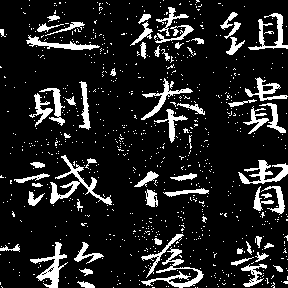 組貴冑對
德本仁為
之則誠於